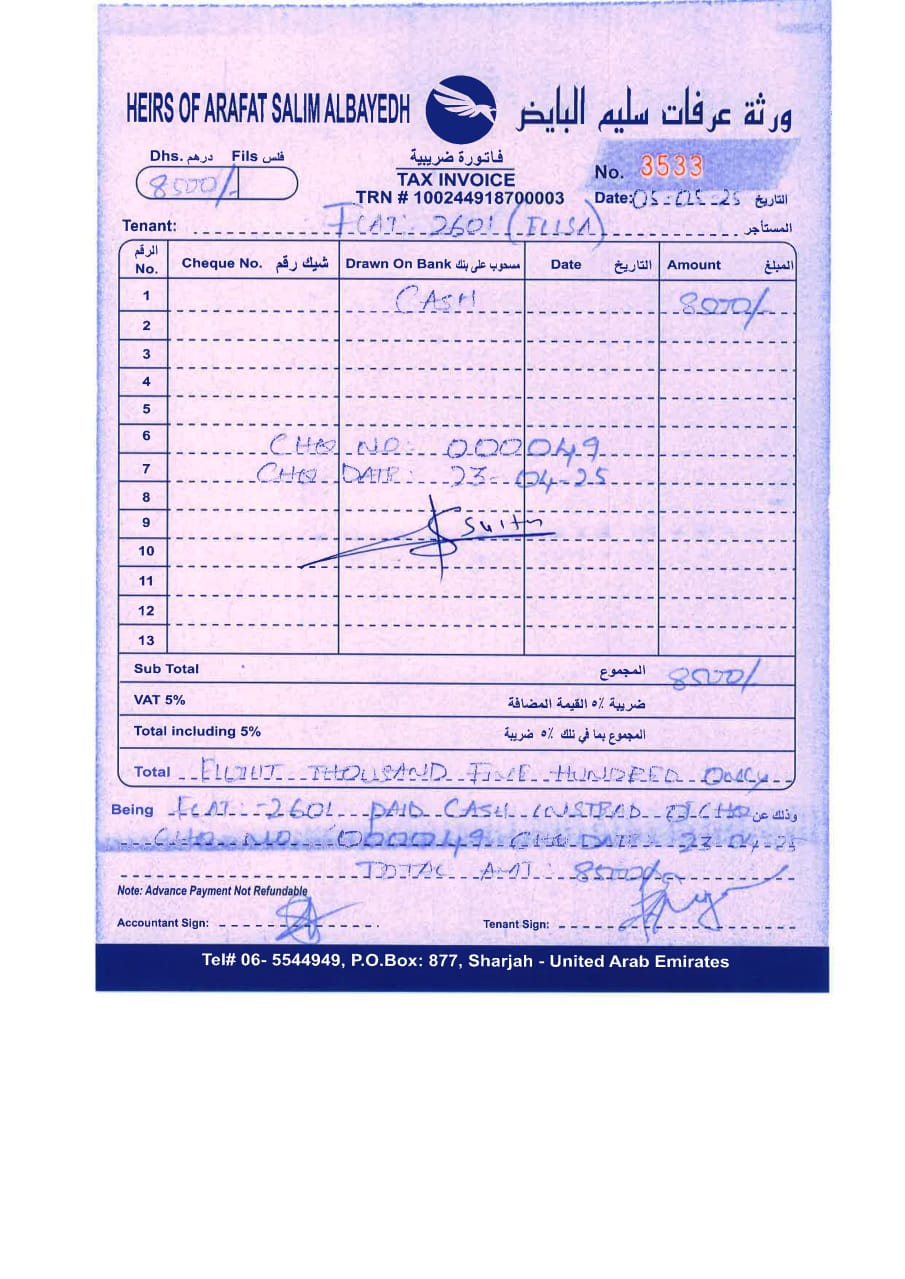 HEIRS OF ARAFAT SALIM ALBAYEDH ورثة عرفات سليم البايض
Dhs. درهم Fils فلس
8500/-
فاتورة ضريبية
TAX INVOICE
TRN # 100244918700003
No. 3533
Date: 05-05-25 التاريخ
Tenant: FLAT: 2601 (ELISA) المستأجر
الرقم No. Cheque No. شيك رقم Drawn On Bank مسحوب على بنك Date التاريخ Amount المبلغ
1 CASH 8500/-
2
3
4
5
6 CHQ NO: 000049
7 CHQ DATE: 23-04-25
8
9
10
11
12
13
Sub Total المجموع 8500/-
VAT 5% ضريبة ٥٪ القيمة المضافة
Total including 5% المجموع بما في تلك ٥٪ ضريبة
Total EIGHT THOUSAND FIVE HUNDRED ONLY
Being FLAT:-2601 PAID CASH INSTEAD OF CHQ وذلك عن
CHQ NO. 000049 CHQ DATE: 23-04-25
TOTAL AMT: 8500/-
Note: Advance Payment Not Refundable
Accountant Sign: Tenant Sign:
Tel# 06- 5544949, P.O.Box: 877, Sharjah - United Arab Emirates